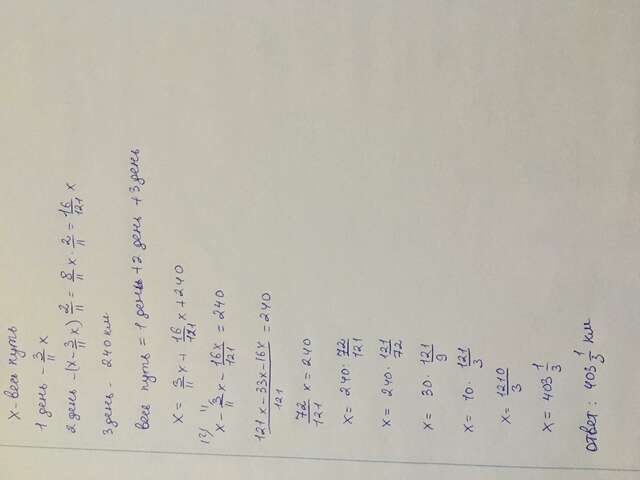 x - весь путь
1 день - 3/11 x
2 день - (x - 3/11 x) 2/11 = 8/11 x · 2/11 = 16/121 x
3 день - 240 км
весь путь = 1 день + 2 день + 3 день
x = 3/11 x + 16/121 x + 240
x - 3/11 x - 16x/121 = 240
121x - 33x - 16x / 121 = 240
72/121 x = 240
x = 240 : 72/121
x = 240 · 121/72
x = 30 · 121/9
x = 10 · 121/3
x = 1210/3
x = 403 1/3
ответ: 403 1/3 км